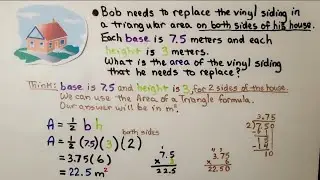 • Bob needs to replace the vinyl siding in
a triangular area on both sides of his house.
Each base is 7.5 meters and each
height is 3 meters.
What is the area of the vinyl siding
that he needs to replace?
Think: base is 7.5 and height is 3, for 2 sides of the house.
We can use the Area of a Triangle formula.
Our answer will be in m².
A = 1/2 b h
both sides
A = 1/2 (7.5)(3)(2)
= 3.75(6)
= 22.5 m²
1
7.5
x 3
22.5
4 3
3.75
x 6
22.50
3.75
2 7.50
-6
15
-14
10